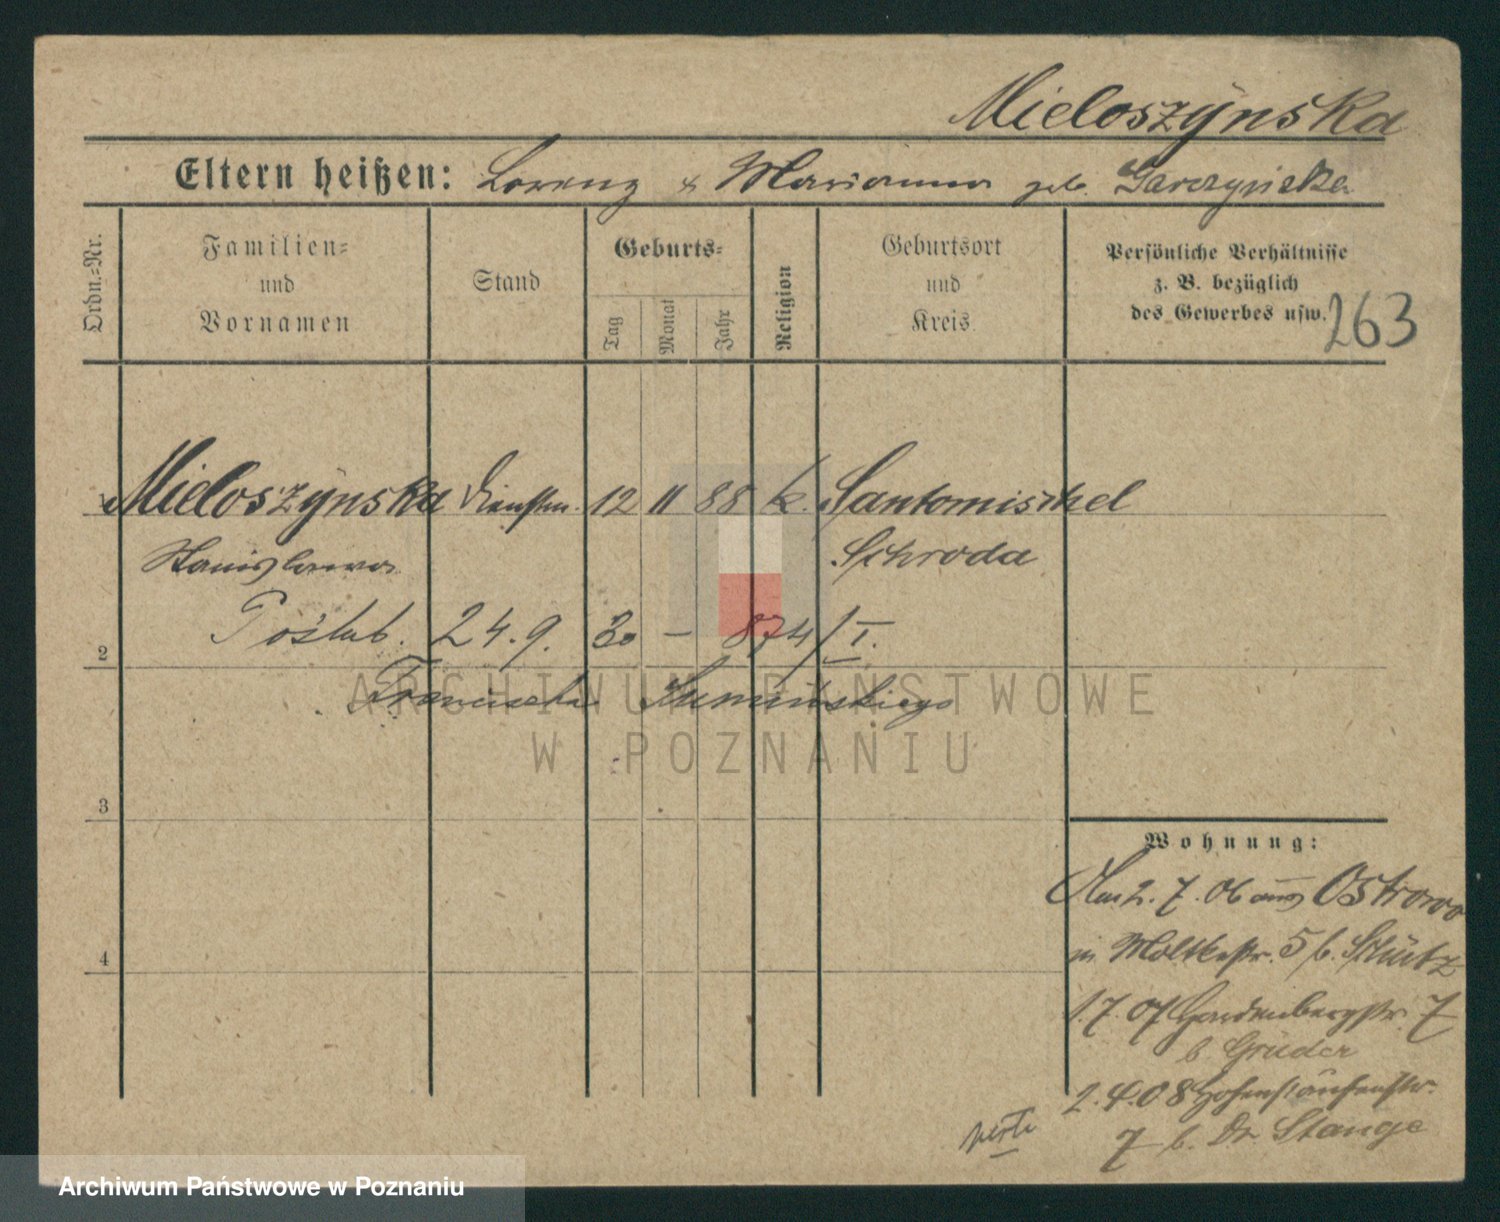 Mieloszýnska
Eltern heißen: Lorenz & Marianna geb. Garczynska
Ordn.-Nr.
Familien-
und
Vornamen
Stand
Geburts-
Tag
Monat
Jahr
Religion
Geburtsort
und
Kreis
Persönliche Verhältnisse
z. B. bezüglich
des Gewerbes usw.
263
1 Mieloszýnska Dienstm. 12 11 88 k. Santomischel
Stanislawa Schroda
Poślub. 24.9. 30 - 874/I.
2
Franciszka Sumińskiego
ARCHIWUM PAŃSTWOWE
W POZNANIU
3
Wohnung:
Am 2.7.06 aus Ostrowo
in Moltkestr. 5 b. Stütz
4
1.7.07 Hardenbergstr. 7
b Grüder
2.4.08 Hohenstaufenstr.
7 b. Dr Stange
verte
Archiwum Państwowe w Poznaniu